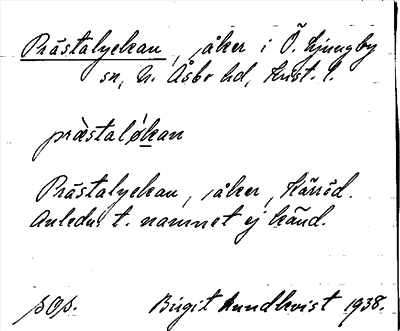 Prästalyckan, åker i Ö. Ljungby
sn, N. Åsbo hd, Krist. l.
præstalỏkan
Prästalyckan, åker, Kärrid.
Anledn. t. namnet ej känd.
sOp. Birgit Lundkvist 1938.